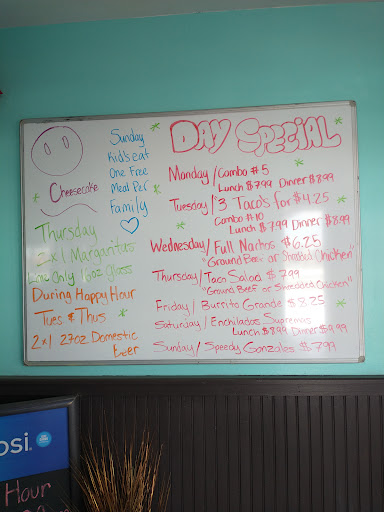 Cheesecake
Sunday
Kid's eat
One Free
Meal Per
Family
Thursday
2x1 Margaritas
Lime Only 16oz Glass
During Happy Hour
Tues & Thus
2x1 27oz Domestic
Beer
DAY SPECIAL
Monday / Combo #5
Lunch $7.99 Dinner $8.99
Tuesday / 3 Taco's for $4.25
Combo #10
Lunch $7.99 Dinner $8.99
Wednesday / Full Nachos $6.25
"Ground Beef or Shredded Chicken"
Thursday / Taco Salad $7.99
"Ground Beef or Shredded Chicken"
Friday / Burrito Grande $8.25
Saturday / Enchiladas Supremas
Lunch $8.99 Dinner $9.99
Sunday / Speedy Gonzales $7.99
osi
Hour